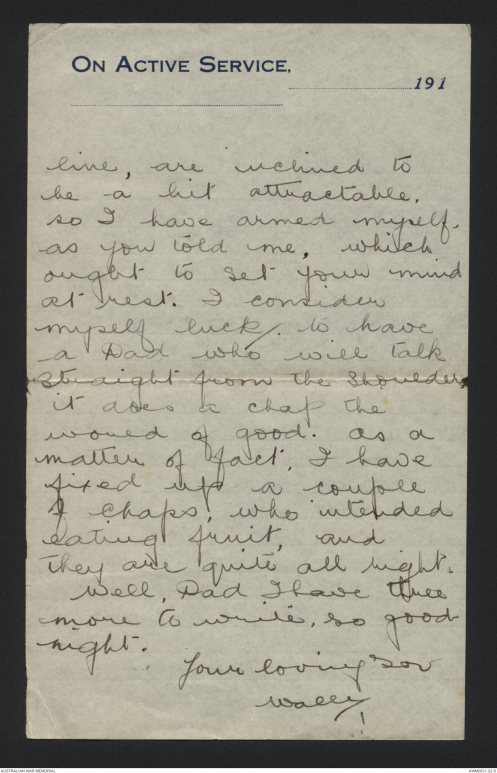 ON ACTIVE SERVICE,
191
line, are inclined to
be a bit attractable.
so I have armed myself.
as you told me, which
ought to set your mind
at rest. I consider
myself lucky. to have
a Dad who will talk
straight from the Shoulder,
it does a chap the
woued of good. as a
matter of fact, I have
fixed up a couple
of chaps, who intended
eating fruit, and
they are quite all right.
Well, Dad I have three
more to write, so good
night.
Your loving Son
Wally!
AUSTRALIAN WAR MEMORIAL